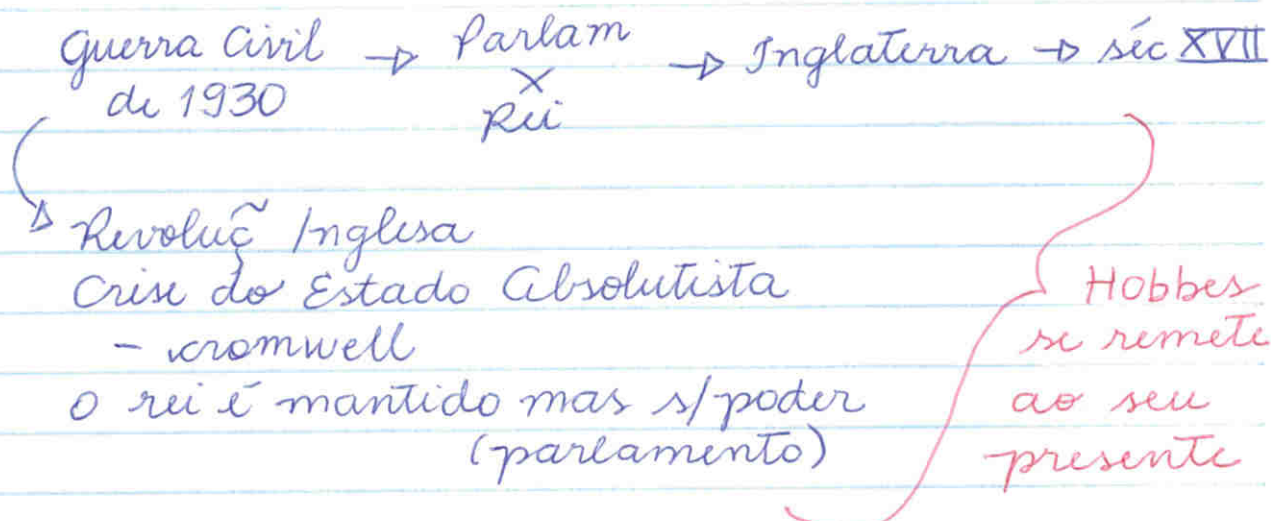 Guerra Civil → Parlam → Inglaterra → séc XVII
de 1930 X
Rei
Revoluç~ Inglesa
Crise do Estado Absolutista
- cromwell
o rei é mantido mas s/poder
(parlamento)
Hobbes
se remete
ao seu
presente